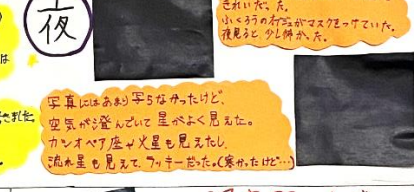 夜
きれいだった。
ふくろうの
がマスクをつけていた。
夜見ると、少し怖かった。
は
ました
写真にはあまり写らなかったけど、
空気が澄んでいて星がよく見えた。
カシオペア座や火星も見えたし、
流れ星も見えて、ラッキーだった。(寒かったけど…)